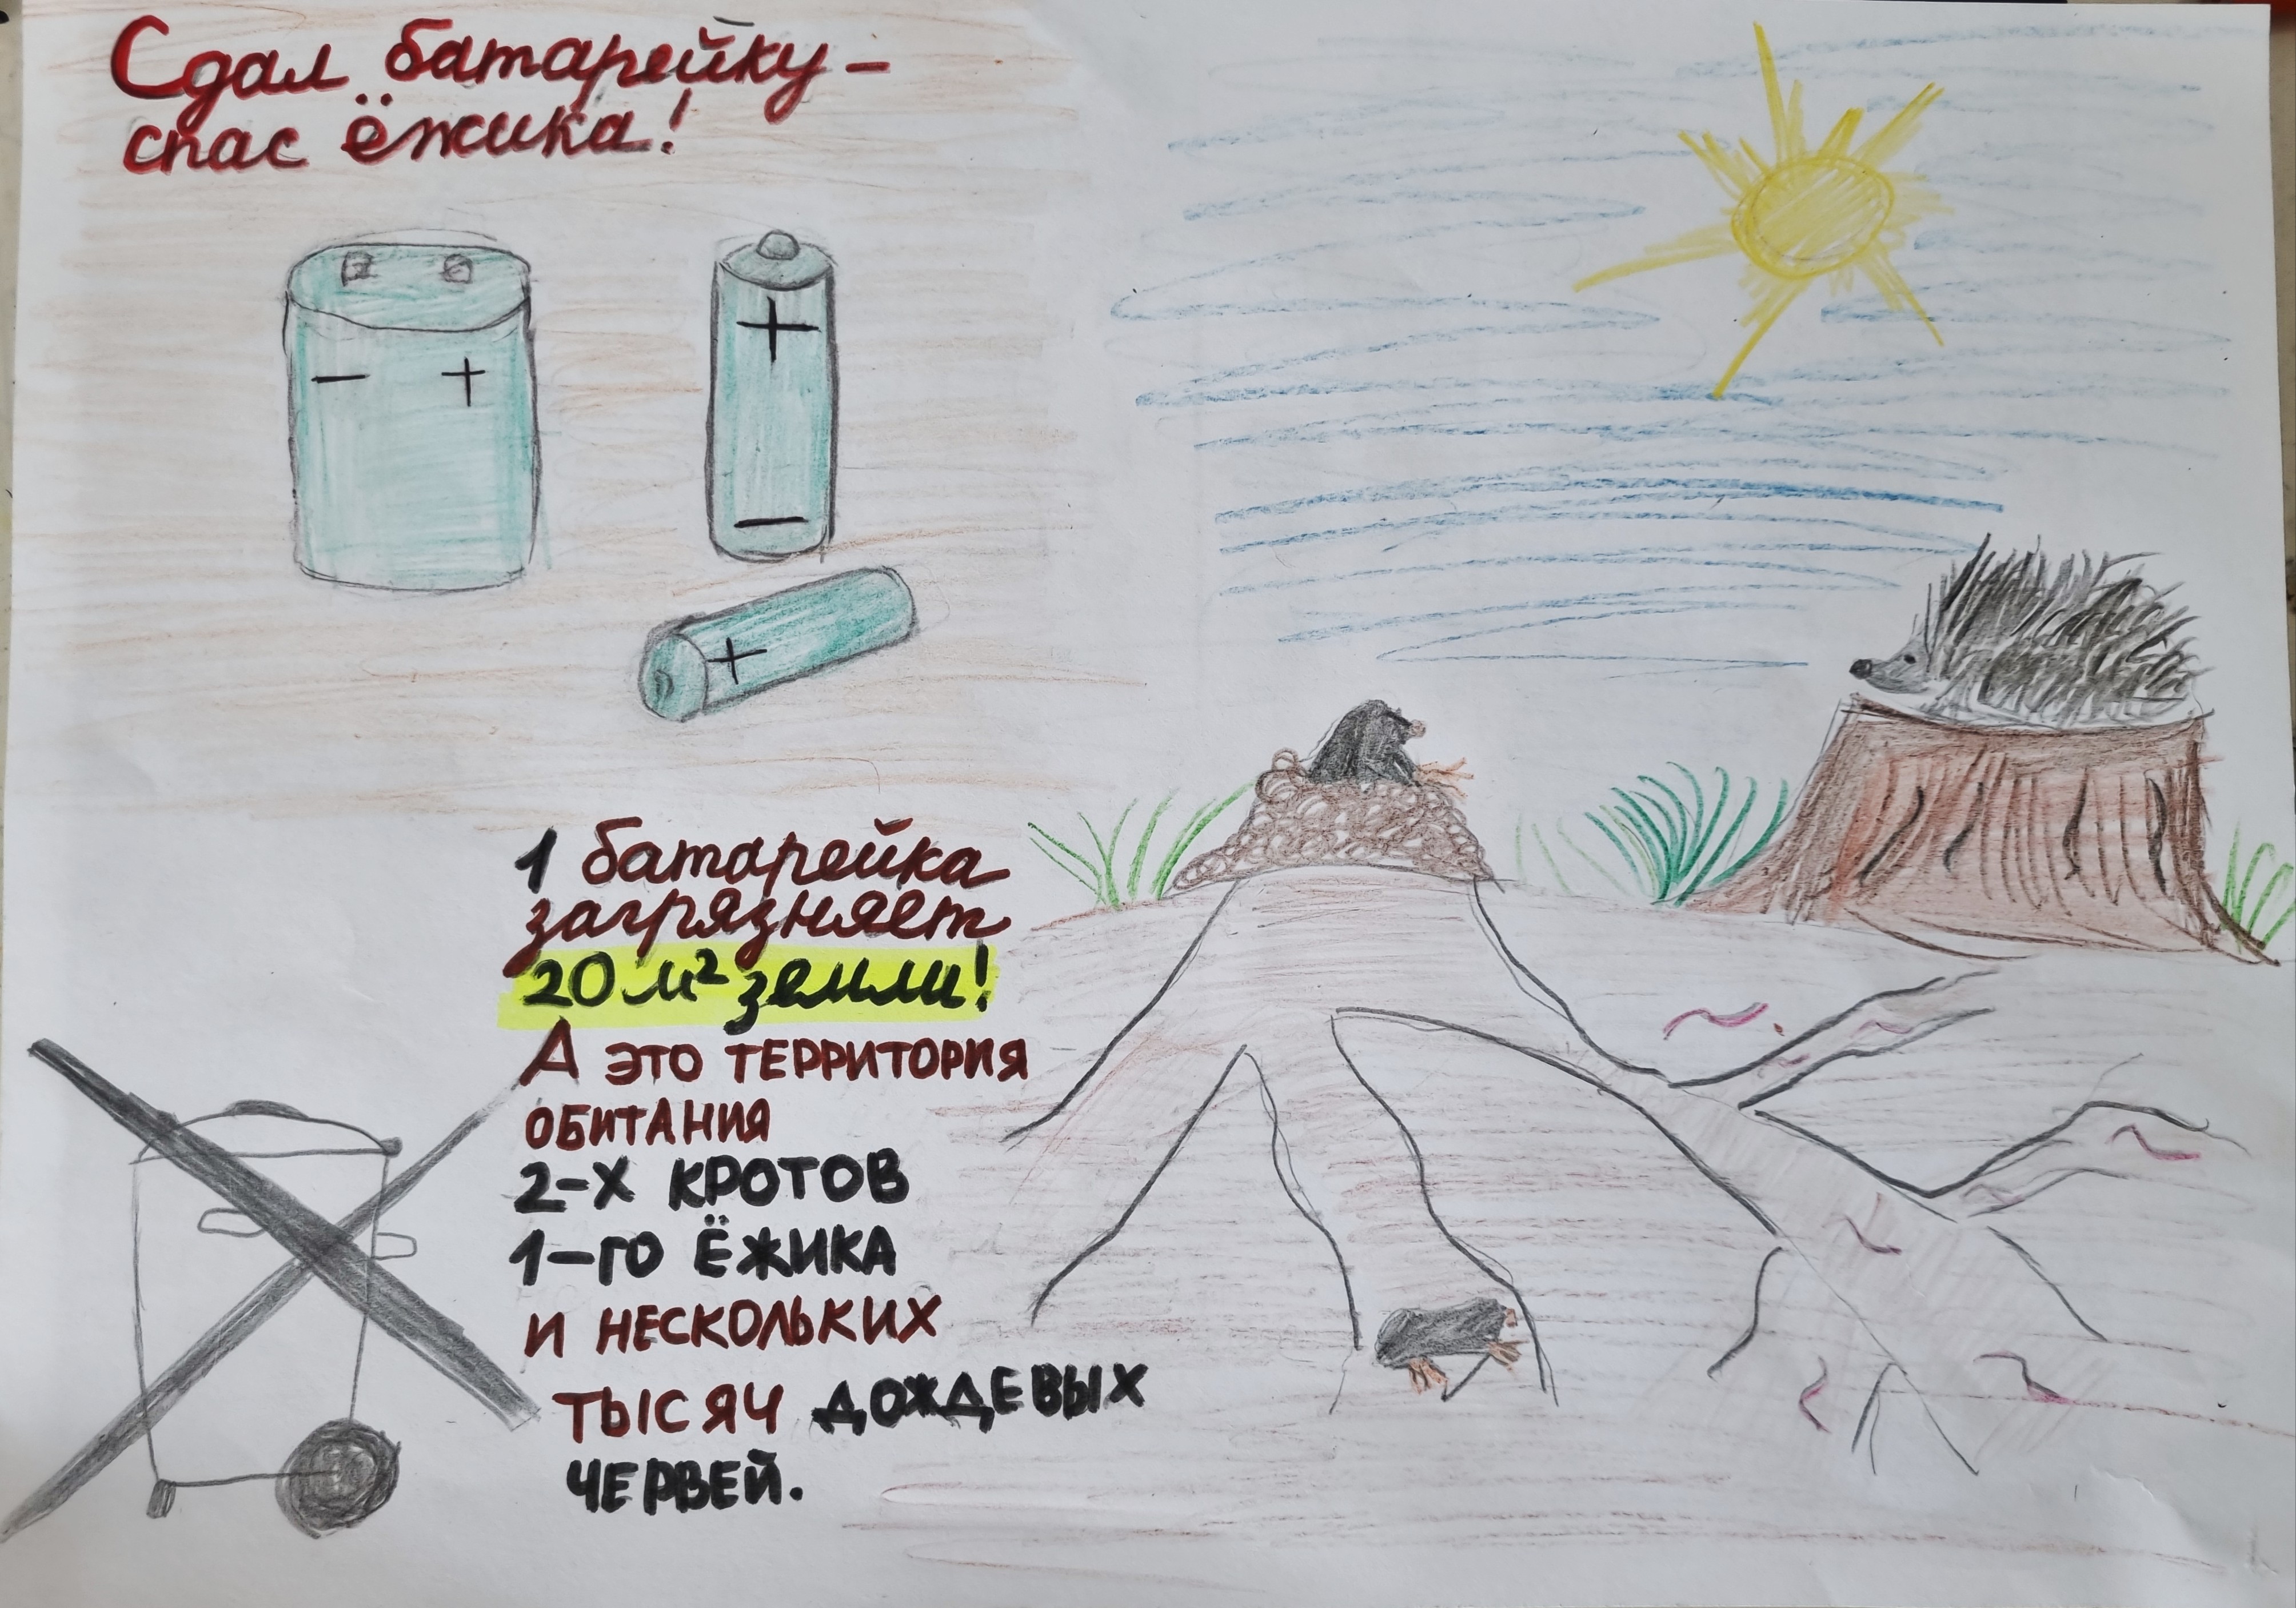 Сдал батарейку -
спас ёжика!
- +
+
-
+
1 батарейка
загрязняет
20 м² земли!
А ЭТО ТЕРРИТОРИЯ
ОБИТАНИЯ
2-Х КРОТОВ
1-ГО ЁЖИКА
И НЕСКОЛЬКИХ
ТЫСЯЧ ДОЖДЕВЫХ
ЧЕРВЕЙ.